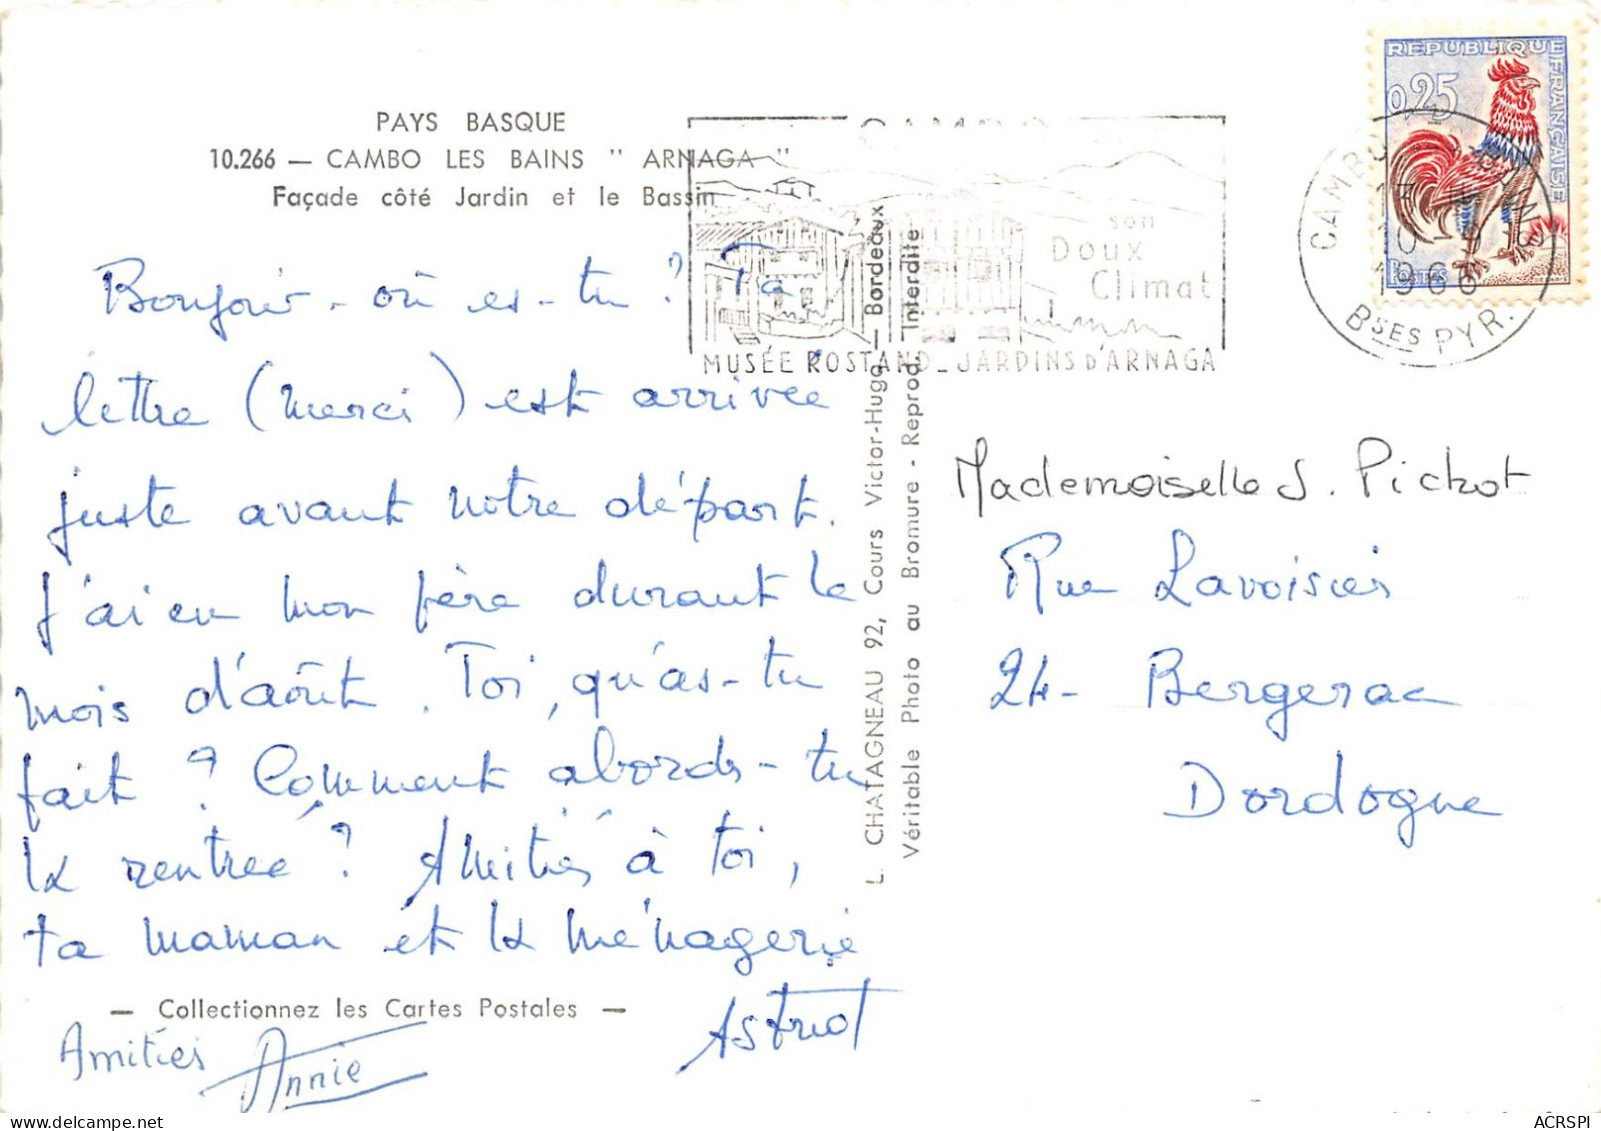 PAYS BASQUE
10.266 — CAMBO LES BAINS " ARNAGA "
Façade côté Jardin et le Bassin
Bonjour - où es-tu ? Ta
lettre (merci) est arrivée
juste avant notre départ.
J'ai eu mon père durant le
mois d'août. Toi, qu'as-tu
fait ? Comment abords-tu
la rentrée ? Amitiés à toi,
ta maman et la ménagerie
Astrid
— Collectionnez les Cartes Postales —
Amitiés Annie
L. CHATAGNEAU 92, Cours Victor-Hugo — Bordeaux
Véritable Photo au Bromure - Reprod. Interdite
CAMBO
son
Doux
Climat
MUSÉE ROSTAND_JARDINS D'ARNAGA
REPUBLIQUE FRANÇAISE
0,25
POSTES
10 - 9
1966
BSES PYR.
Mademoiselle S. Pichot
Rue Lavoisier
24 - Bergerac
Dordogne
ACRSPI